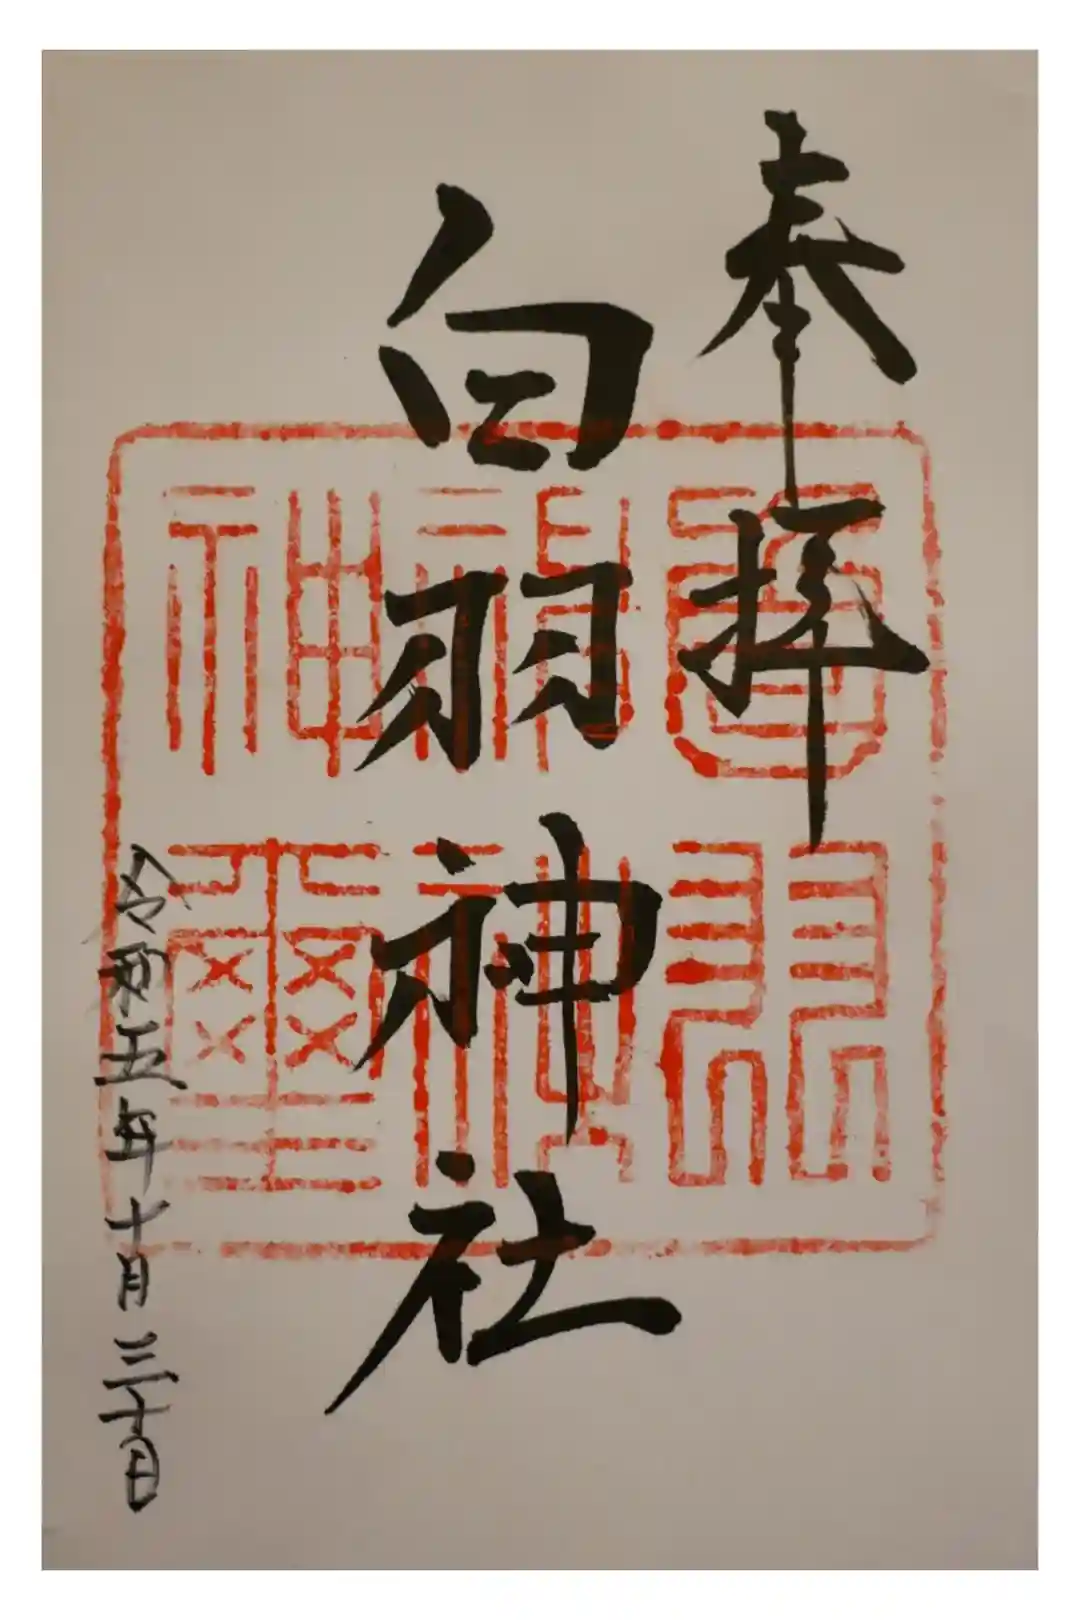 奉拝
白羽神社
令和五年十月三十日
羽
神璽